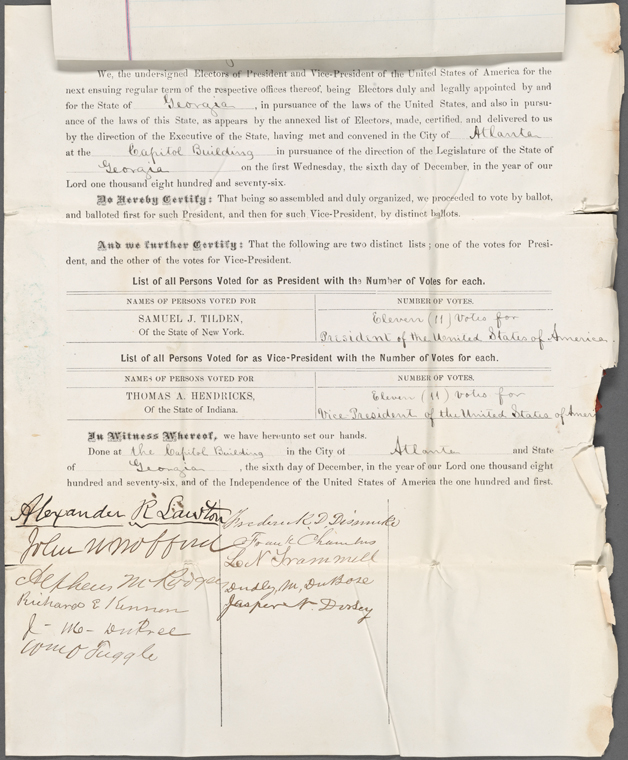 We, the undersigned Electors of President and Vice-President of the United States of America for the
next ensuing regular term of the respective offices thereof, being Electors duly and legally appointed by and
for the State of Georgia, in pursuance of the laws of the United States, and also in pursu-
ance of the laws of this State, as appears by the annexed list of Electors, made, certified, and delivered to us
by the direction of the Executive of the State, having met and convened in the City of Atlanta
at the Capitol Building in pursuance of the direction of the Legislature of the State of
Georgia on the first Wednesday, the sixth day of December, in the year of our
Lord one thousand eight hundred and seventy-six.
Do Hereby Certify: That being so assembled and duly organized, we proceeded to vote by ballot,
and balloted first for such President, and then for such Vice-President, by distinct ballots.
And we further Certify: That the following are two distinct lists; one of the votes for Presi-
dent, and the other of the votes for Vice-President.
List of all Persons Voted for as President with the Number of Votes for each.
NAMES OF PERSONS VOTED FOR NUMBER OF VOTES.
SAMUEL J. TILDEN, Eleven (11) Votes for
Of the State of New York. President of the United States of America.
List of all Persons Voted for as Vice-President with the Number of Votes for each.
NAMES OF PERSONS VOTED FOR NUMBER OF VOTES.
THOMAS A. HENDRICKS, Eleven (11) Votes for
Of the State of Indiana. Vice President of the United States of Ameri
In Witness Whereof, we have hereunto set our hands.
Done at the Capitol Building in the City of Atlanta and State
of Georgia, the sixth day of December, in the year of our Lord one thousand eight
hundred and seventy-six, and of the Independence of the United States of America the one hundred and first.
Alexander R Lawton
John W Wofford
Alpheus M Rodgers
Richard E Kennon
J- M- DuPree
Wm O Tuggle
Frederick D Dismuke
Frank Chambers
L N Trammell
Dudley, M, DuBose
Jasper N. Dorsey